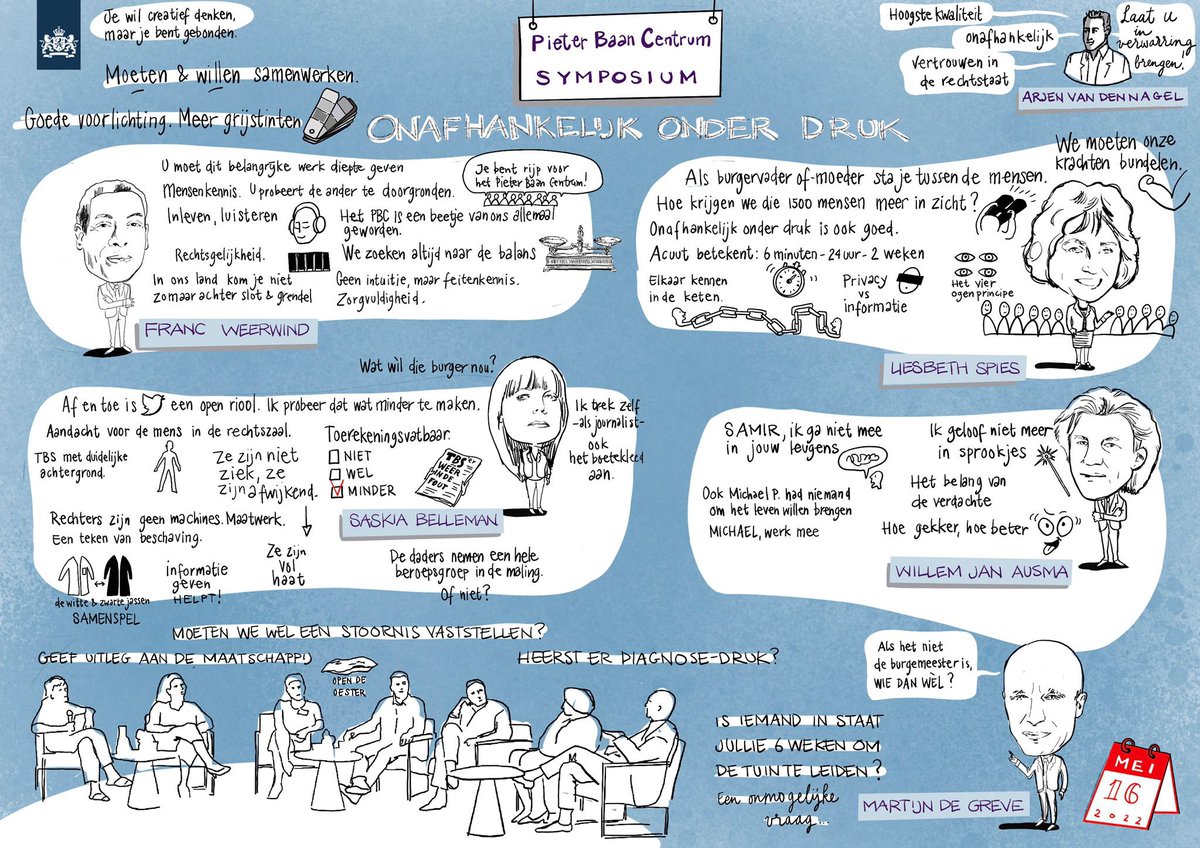 Je wil creatief denken,
maar je bent gebonden.
Moeten & willen samenwerken.
Goede voorlichting. Meer grijstinten
Pieter Baan Centrum
SYMPOSIUM
ONAFHANKELIJK ONDER DRUK
Hoogste kwaliteit
onafhankelijk
Vertrouwen in
de rechtstaat
Laat u
in
verwarring
brengen!
ARJEN VAN DEN NAGEL
U moet dit belangrijke werk diepte geven
Mensenkennis. U probeert de ander te doorgronden.
Je bent rijp voor
het Pieter Baan Centrum!
Inleven, luisteren
Het PBC is een beetje van ons allemaal
geworden.
Rechtsgelijkheid.
We zoeken altijd naar de balans
In ons land kom je niet
zomaar achter slot & grendel
Geen intuitie, maar feitenkennis.
Zorgvuldigheid.
FRANC WEERWIND
We moeten onze
krachten bundelen.
Als burgervader of-moeder sta je tussen de mensen.
Hoe krijgen we die 1500 mensen meer in zicht?
Onafhankelijk onder druk is ook goed.
Acuut betekent: 6 minuten - 24 uur - 2 weken
Elkaar kennen
in de keten.
Privacy
vs
informatie
Het vier
ogen principe
LIESBETH SPIES
Wat wìl die burger nou?
Af en toe is een open riool. Ik probeer dat wat minder te maken.
Aandacht voor de mens in de rechtszaal.
TBS met duidelijke
achtergrond.
Ze zijn niet
ziek, ze
zijn afwijkend.
Toerekeningsvatbaar.
NIET
WEL
MINDER
TBS'er
WEER
IN DE
FOUT
Ik trek zelf
-als journalist-
ook
het boetekleed
aan.
SASKIA BELLEMAN
Rechters zijn geen machines. Maatwerk.
Een teken van beschaving.
de witte & zwarte jassen
SAMENSPEL
informatie
geven
HELPT!
Ze zijn
vol
haat
De daders nemen een hele
beroepsgroep in de maling.
Of niet?
SAMIR, ik ga niet mee
in jouw leugens
Ik geloof niet meer
in sprookjes
Het belang van
de verdachte
Ook Michael P. had niemand
om het leven willen brengen
MICHAEL, werk mee
Hoe gekker, hoe beter
WILLEM JAN AUSMA
MOETEN WE WEL EEN STOORNIS VASTSTELLEN?
GEEF UITLEG AAN DE MAATSCHAPPIJ
HEERST ER DIAGNOSE-DRUK?
OPEN DE
OESTER
Als het niet
de burgemeester is,
WIE DAN WÈL?
IS IEMAND IN STAAT
JULLIE 6 WEKEN OM
DE TUIN TE LEIDEN?
Een onmogelijke
vraag...
MARTIJN DE GREVE
MEI
16
2022